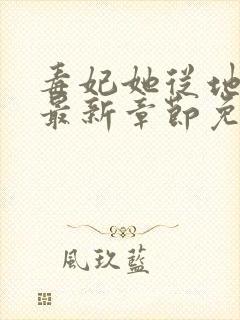 毒妃她从地
最新章節免
風玖藍